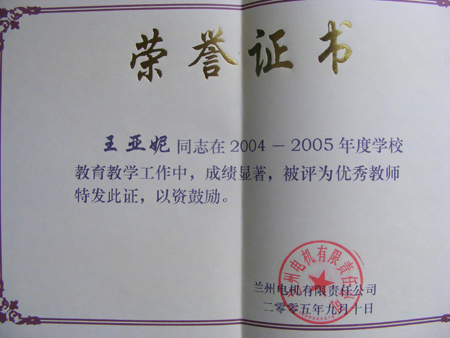 荣誉证书
王亚妮同志在2004－2005年度学校
教育教学工作中，成绩显著，被评为优秀教师
特发此证，以资鼓励。
兰州电机有限责任公司
二零零五年九月十日
兰州电机有限责任公司